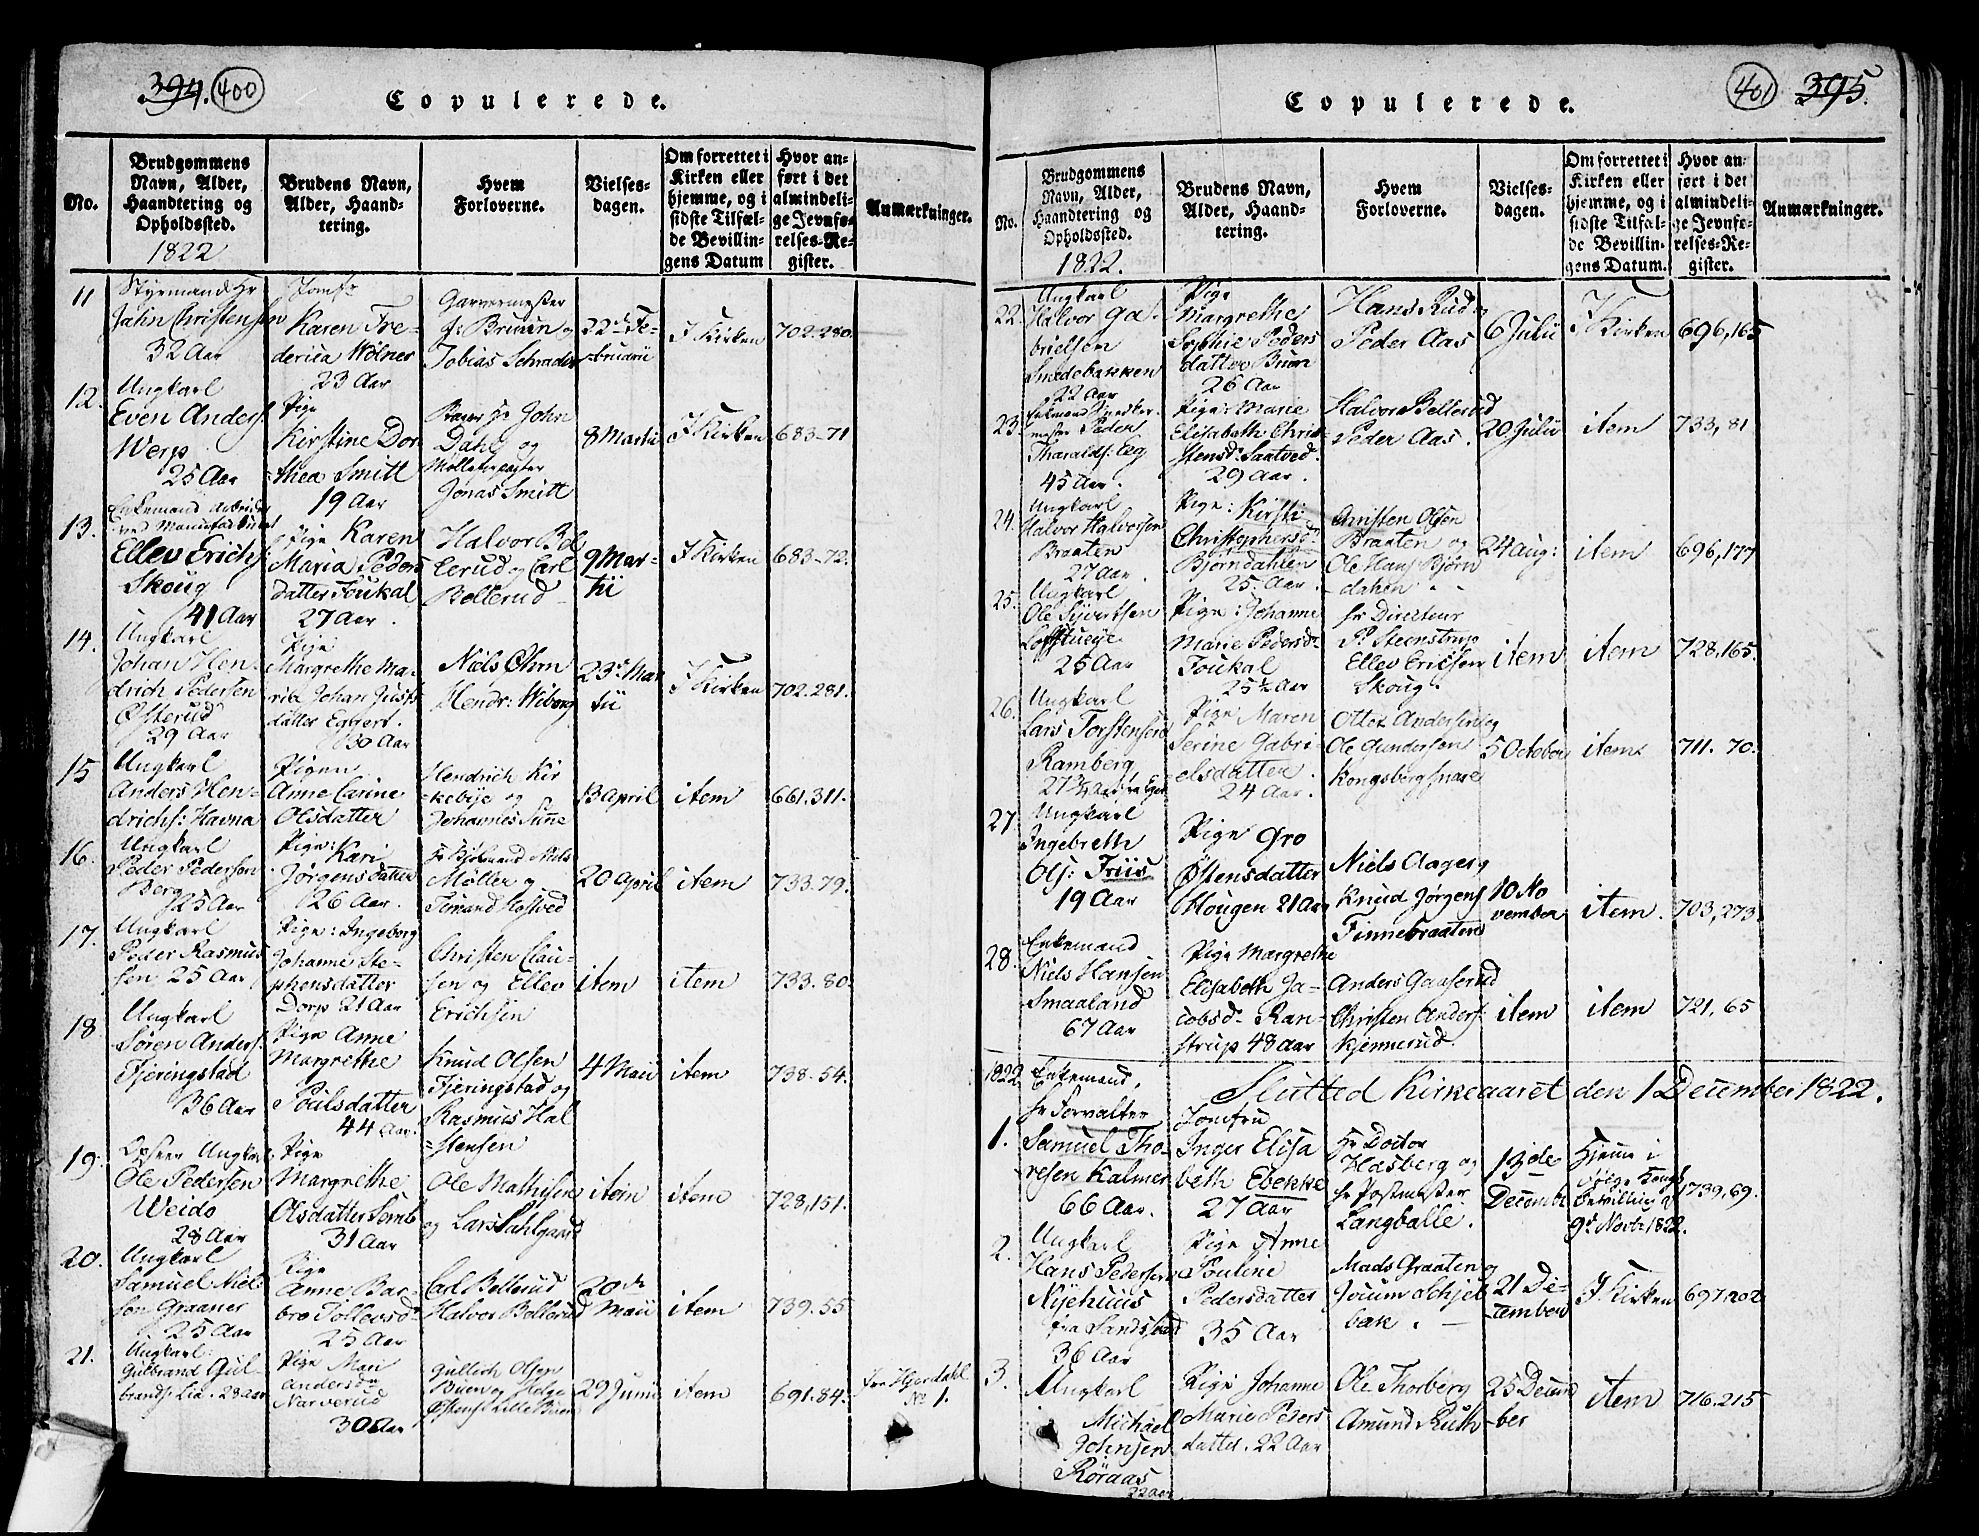 394. 400
Copulerede.
No.
Brudgommens
Navn, Alder,
Haandtering og
Opholdssted.
1822
Brudens Navn,
Alder, Haand-
tering.
Hvem
Forloverne.
Vielses-
dagen.
Om forrettet i
Kirken eller
hjemme, og i
sidste Tilfæl-
de Bevillin-
gens Datum
Hvor an-
ført i det
almindeli-
ge Jevnfø-
relses-Re-
gister.
Anmærkninger.
11
Styrmand Hr
Jahn Christensen
32 Aar
Jomfr
Karen Fre-
derica Wølner
23 Aar
Garvermester
J: Bruun og
Tobias Schrader
22d Fe-
bruarii
I Kirken
702-280.
12.
Ungkarl
Even Anders:
Werp
25 Aar
Pige
Kirstine Dor
thea Smitt
19 Aar
John
Dahl og
Jonas Smitt
8 Martii
I Kirken
683-71
13.
Enkemand Arbeider
Ellev Erichs:
Skoug
41 Aar
Pige Karen
Maria Peders
datter Foukal
27 Aar.
Halvor Bel
lerud og Carl
Bellerud
9 Mar-
tii
I Kirken
683-72.
14.
Ungkarl
Johan Hen-
drich Pedersen
Østerud
29 Aar
Pige
Margrethe Ma-
ria Johan Just
datter Eggers.
30 Aar
Niels Øhrn
Hendr: Wiborg
23d Mar
tii
I Kirken
702.281.
15
Ungkarl
Anders Hen-
drichs: Havna
Pigen
Anne Carine
Olsdatter
Hendrich Kir
kebye og
Johannes Sinne
13 April
item
661.311.
16.
Ungkarl
Peder Pedersen
Berg
25 Aar
Pige: Kari
Jørgensdatter
26 Aar.
Niels
Møller og
20 April
item
733.79.
17.
Ungkarl
Peder Rasmus
sen 25 Aar
Pige: Ingeborg
Johanne Ste-
phensdatter
Dorp 21 Aar
Christen Clau-
sen og Ellev
Erichsen
item
item
733.80.
18.
Ungkarl
Søren Anders:
Fjeringstad
36 Aar
Pige Anne
Margrethe
Poulsdatter
44 Aar.
Knud Olsen
Fjeringstad og
Rasmus Hal
stensen
4 Maii
item
738.54.
19.
Ungkarl
Ole Pedersen
Weido
28 Aar
Pige
Margrethe
Olsdatter Semb
31 Aar
Ole Mathisen
og Lars Dahlgaard
item
item
728,151.
20.
Ungkarl
Samuel Niel-
sen Graaner
25 Aar
Pige
Anne Bar-
bro Tollevsd
25 Aar
Carl Bellerud
Halvor Bellerud
20de
Maii
item
739.55
21.
Ungkarl:
Gulbrand Gul-
brands: Lia. 28 aar
Pige Mari
Andersdr
Narverud
30 Aar
Gullich Olsen
Buen og Helge
Østens: Lille Buen
29 Junii
item
691.84.
fra Hjerdahl
No 1.
401 395.
Copulerede.
No.
Brudgommens
Navn, Alder,
Haandtering og
Opholdssted.
1822.
Brudens Navn,
Alder, Haand-
tering.
Hvem
Forloverne.
Vielses-
dagen.
Om forrettet i
Kirken eller
hjemme, og i
sidste Tilfæl-
de Bevillin-
gens Datum.
Hvor an-
ført i det
almindeli-
ge Jevnfø-
relses-Re-
gister.
Anmærkninger.
22.
Ungkarl
Halvor Ga-
brielsen
Smedebakken
22 Aar
Pige
Margrethe
Sophie Peders
datter Buen
26 Aar
Hans Rud og
Peder Aas
6 Julii
I Kirken
696,165
23.
Enkemand Snedker-
mester Peder
Tharalds: Eeg
45 Aar.
Pige: Marie
Elisabeth Chris-
stensd: Saatved.
29 Aar.
Halvor Bellerud
Peder Aas.
20 Julii
item
733,81
24.
Ungkarl
Halvor Halvorsen
Braaten
27 Aar.
Pige: Kirsti
Christophersd
Bjørndahlen
25 Aar.
Christen Olsen
Braaten og
Ole Hans Bjørn
dahlen
24 Aug:
item
696,177
25.
Ungkarl
Ole Syvertsen
Loffstueye
25 Aar
Pige: Johanne
Marie Pedersdr
Foukal
25½ Aar
Hr Directeur
P: Steenstrup
Ellev Ericsen
Skoug.
item
item
728,165.
26.
Ungkarl
Lars Torstensen
Ramberg
Pige Maren
Serine Gabri
elsdatter.
24 Aar.
Ottee Andersen og
Ole Gundersen
Kongsberg
5 October
item
711. 70.
27
Ungkarl
Ingebreth
Ols: Friis
19 Aar
Pige Gro
Østensdatter
Mougen 21 Aar
Niels Aager og
Knud Jørgens
Finnebraaten
10 No
vember
item.
703,273
28.
Enkemand
Niels Hansen
Smaaland
67 Aar
Pige Margrethe
Elisabeth Ja-
cobsd. Ran-
strup 48 Aar
Anders Gaaserud
Christen Anders:
Kjennerud.
item
item
721, 65
Sluttet Kirkeaaret den 1 December 1822.
1822
1.
Enkemand,
Hr Forvalter
Samuel Tho-
resen Kalmer
66 Aar.
Jomfru
Inger Elisa
beth Ebekke
27 Aar
Hr Doctor
Hasberg og
Hr Postmester
Langballe.
13de
Decemb:
Hjemme i
følge Kongl
Bevilling af
9d Novbr 1822.
739,69.
2.
Ungkarl
Hans Pedersen
Nyehuus
fra Sandsverd
36 Aar
Pige Anne
Pouline
Pedersdatter
35 Aar
Mads Graaten og
Jocum Schjel
bæk.
21 De-
cember
I Kirken
697,202
3.
Ungkarl
Michael
Johnsen
Røraas
22 Aar
Pige Johanne
Marie Peders
datter. 22 Aar
Ole Thorberg
Amund Ruth
25 Decem
ber
item
716.215